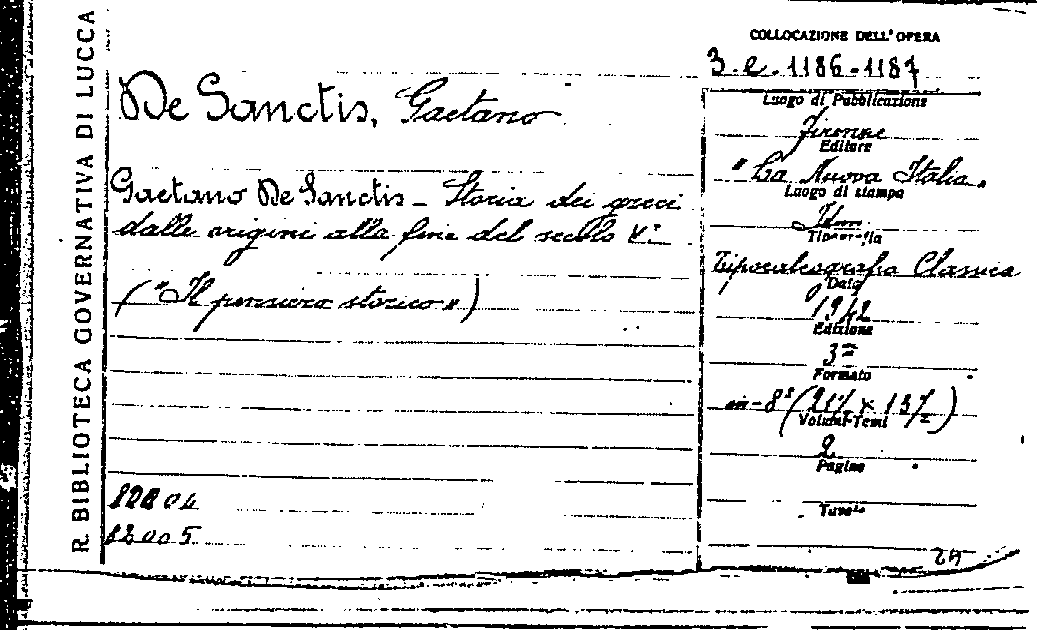 R. BIBLIOTECA GOVERNATIVA DI LUCCA
De Sanctis, Gaetano
Gaetano De Sanctis - Storia dei greci
dalle origini alla fine del secolo V°
("Il pensiero storico")
12004
12005
COLLOCAZIONE DELL'OPERA
3.e.1186-1187
Luogo di Pubblicazione
Firenze
Editore
"La Nuova Italia"
Luogo di stampa
Idem
Tipografia
Tipocalcografia Classica
Data
1942
Edizione
3ª
Formato
in-8° (21½ x 13½)
Volumi-Tomi
2
Pagine
Tavole